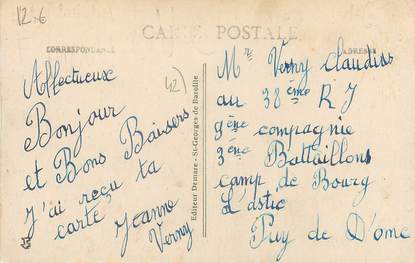 12.€
CARTE POSTALE
CORRESPONDANCE
ADRESSE
Affectueux
Bonjour
et Bons Baisers
J'ai reçu ta
carte
Jeanne
Verny
(42)
Editeur Demare - St-Georges de Baroille
Mr Verny Claudius
au 38ème R J
9ème compagnie
3ème Battaillons
camp de Bourg
L'astic
Puy de D'ome